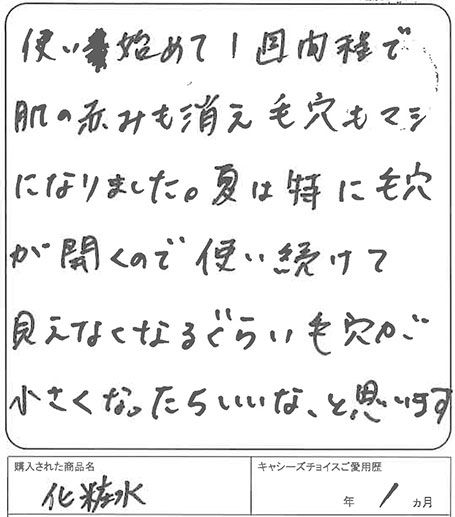 使い始めて1週間程で
肌の赤みも消え毛穴もマシ
になりました。夏は特に毛穴
が開くので使い続けて
見えなくなるぐらい毛穴が
小さくなったらいいな、と思います
購入された商品名
化粧水
キャシーズチョイスご愛用歴
年 1 ヵ月